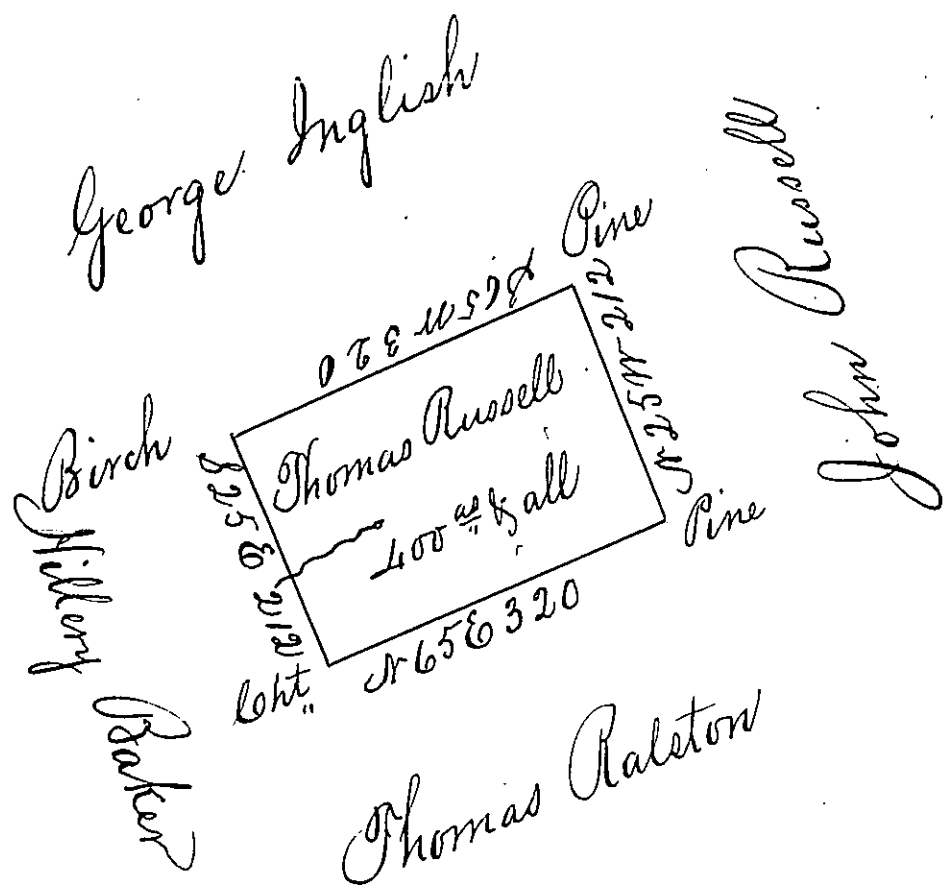 George Inglish
John Russell
Pine
S 65 W 320
N 25 W 212
Thomas Russell
400 as & all
Birch
S 25 E 212
Pine
Cht "
N 65 E 320
Hillery Baker
Thomas Ralston